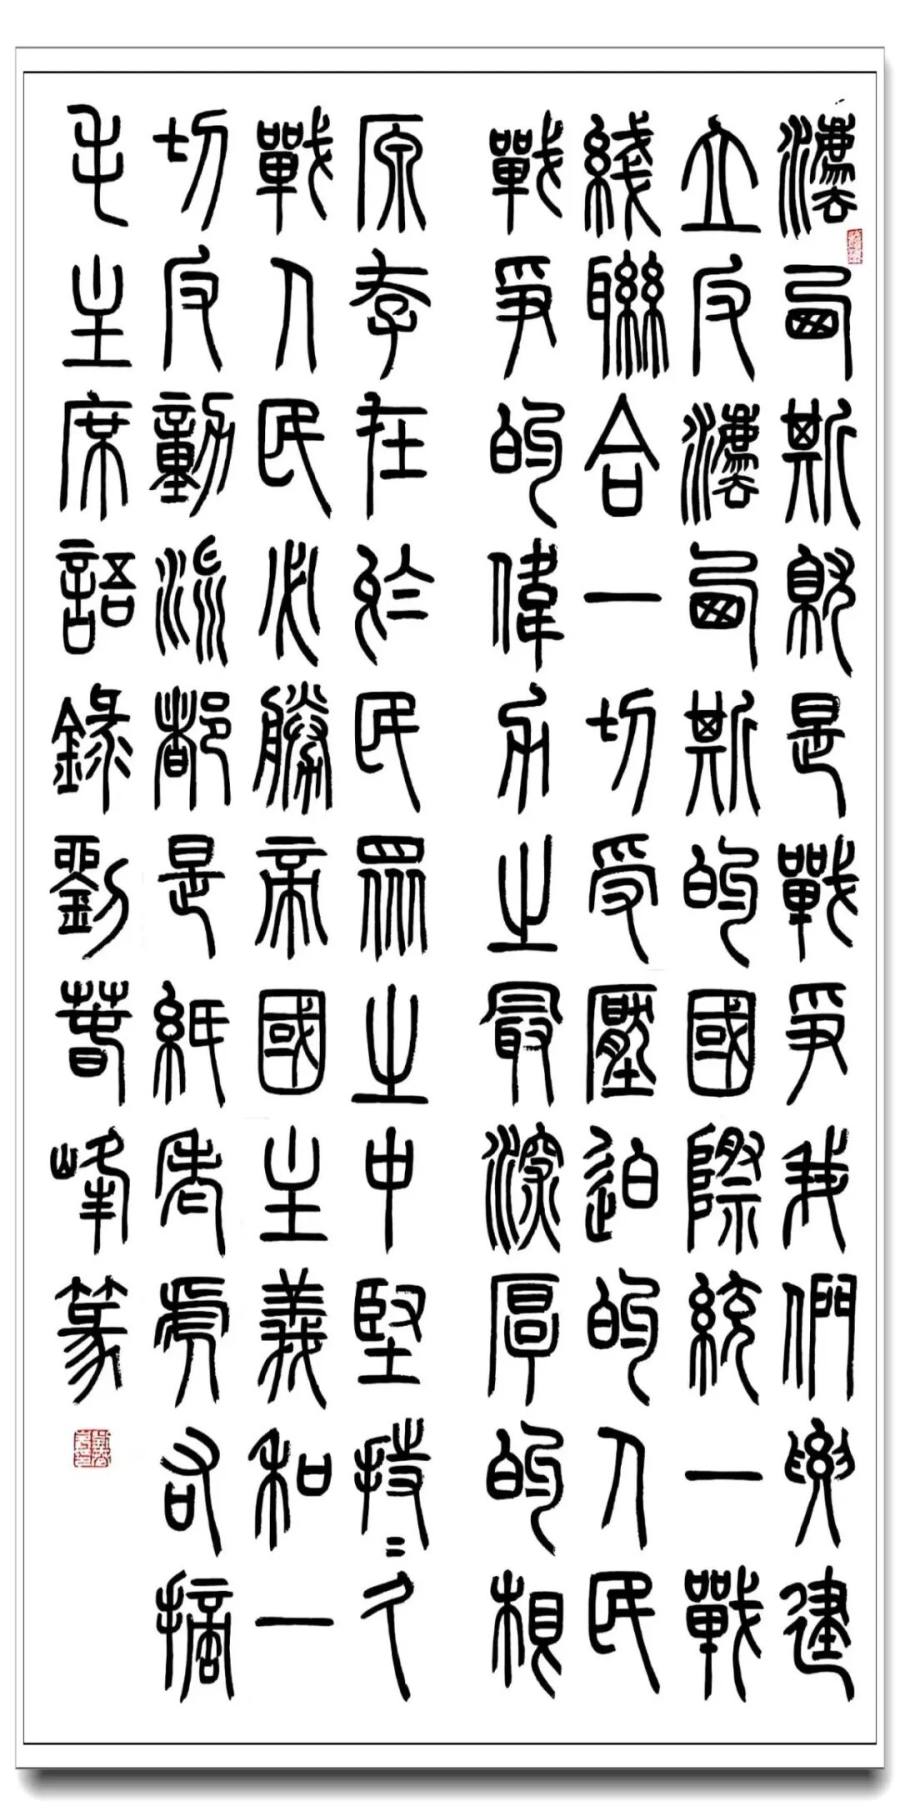 灋西斯就是戰爭我們要建
立反灋西斯的國際統一戰
綫聯合一切受壓迫的人民
戰爭的偉力之最深厚的根
原存在於民眾之中堅持〻久
戰人民必勝帝國主義和一
切反動派都是紙老虎右摘
毛主席語錄劉春峰篆